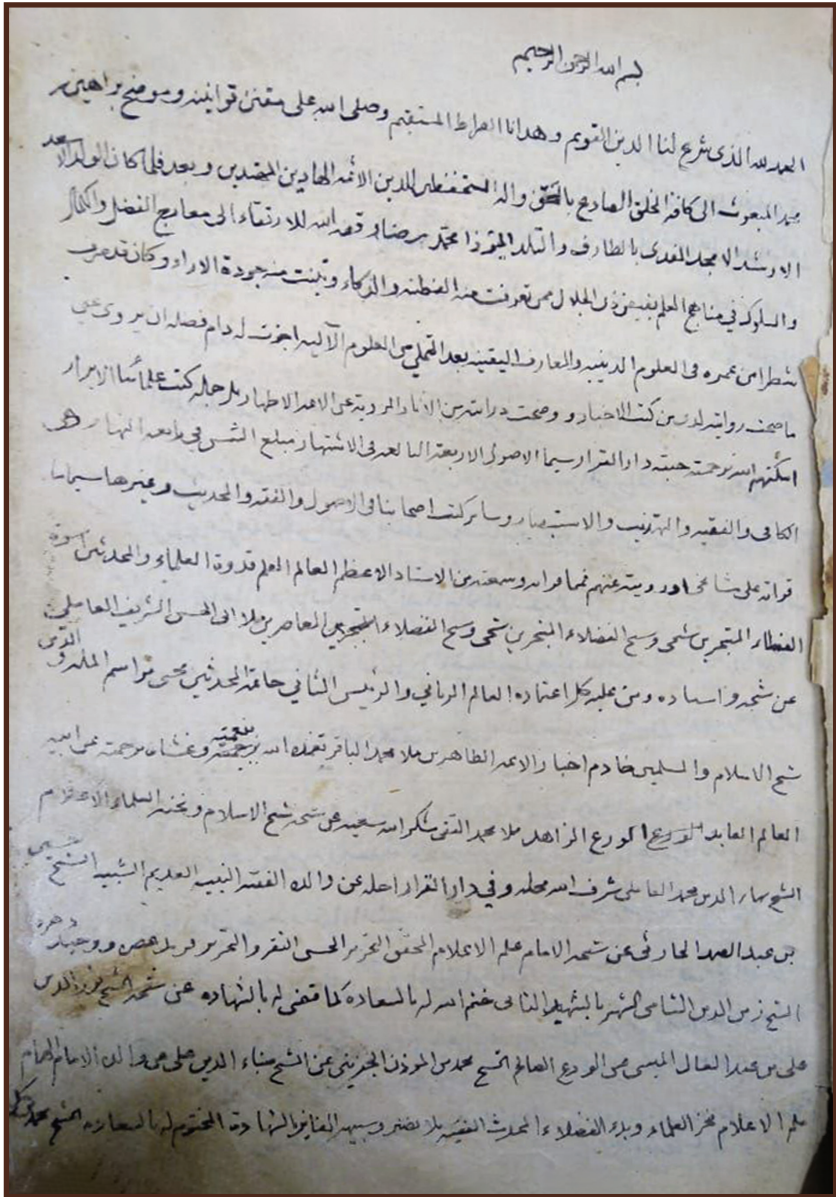 بسم الله الرحمن الرحيم
الحمد لله الذى شرع لنا الدين القويم وهدانا الصراط المستقيم وصلى الله على مقنن قوانينه وموضح براهينه
محمد المبعوث الى كافة الخلق الصادع بالحق واله المستحفظين للدين الأئمة الهادين المهتدين وبعد فلما كان الولد الاسعد
الارشد الامجد المفدى بالطارف والتلد الميرزا محمد رضا وفقه الله للارتقاء الى معارج الفضل والكمال
والسلوك في مناهج العلم بفيض ذى الجلال ممن تعرفت منه الفطنه والذكاء وتبينت منه جودة الاراء وكان قد صرف
شطرا من عمره فى العلوم الدينيه والمعارف اليقينيه بعد التملي من العلوم الآليه اجزت له دام فضله ان يروى عني
ما صحت روايته لدى من كتب الاخبار ووضحت درايته من الآثار المروية عن الائمه الاطهار بل جملة كتب علمائنا الابرار
اسكنهم الله برحمته جنته دار القرار سيما الاصول الاربعة البالغه فى الاشتهار مبلغ الشمس في رابعة النهار هى
الكافى والفقيه والتهذيب والاستبصار وساير كتب اصحابنا فى الاصول والفقه والحديث وغيرها سيما ما
قراته على مشايخى او رويته عنهم فمما قراته وسمعته من الاستاد الاعظم العالم العلم قدوة العلماء والمحدثين اسوة
العظماء المتبحرين شيخى وشيخ الفضلاء المتبحرين شيخى وشيخ الفضلاء المعاصرين ملا ابى الحسن الشريف العاملى
عن شيخه واستاده ومن عليه كل اعتماده العالم الربانى والرئيس الثانى خاتمة المحدثين محيى مراسم الملة و الدين
شيخ الاسلام والمسلمين خادم اخبار الائمه الطاهرين ملا محمد الباقر تغمده الله بنعمته وغشاه برحمته عن ابيه
العالم العابد الورع الزاهد ملا محمد التقى شكر الله سعيه عن شيخه شيخ الاسلام ونخبة العلماء الاعلام
الشيخ بهاء الدين محمد العاملى شرف الله محله وفي دار القرار احله عن والده الفقيه النبيه العديم الشبيه الشيخ حسين
بن عبد الصمد الحارثى عن شيخه الامام علم الاعلام المحقق النحرير الحسن التقرير والتحرير فريد عصره ووحيد دهره
الشيخ زين الدين الشامى الشهير بالشهيد الثانى ختم الله له بالسعاده كما قضى له بالشهاده عن شيخه الشيخ نور الدين
على بن عبد العال الميسى عن الورع العالم الشيخ محمد بن الموذن الجزينى عن الشيخ ضياء الدين على عن والده الامام الهمام
علم الاعلام فخر العلماء وبدر الفضلاء المحدث الفقيه بلا نظير وشبيه الفايز بالشهادة المختوم له بالسعاده الشيخ محمد بن مكى